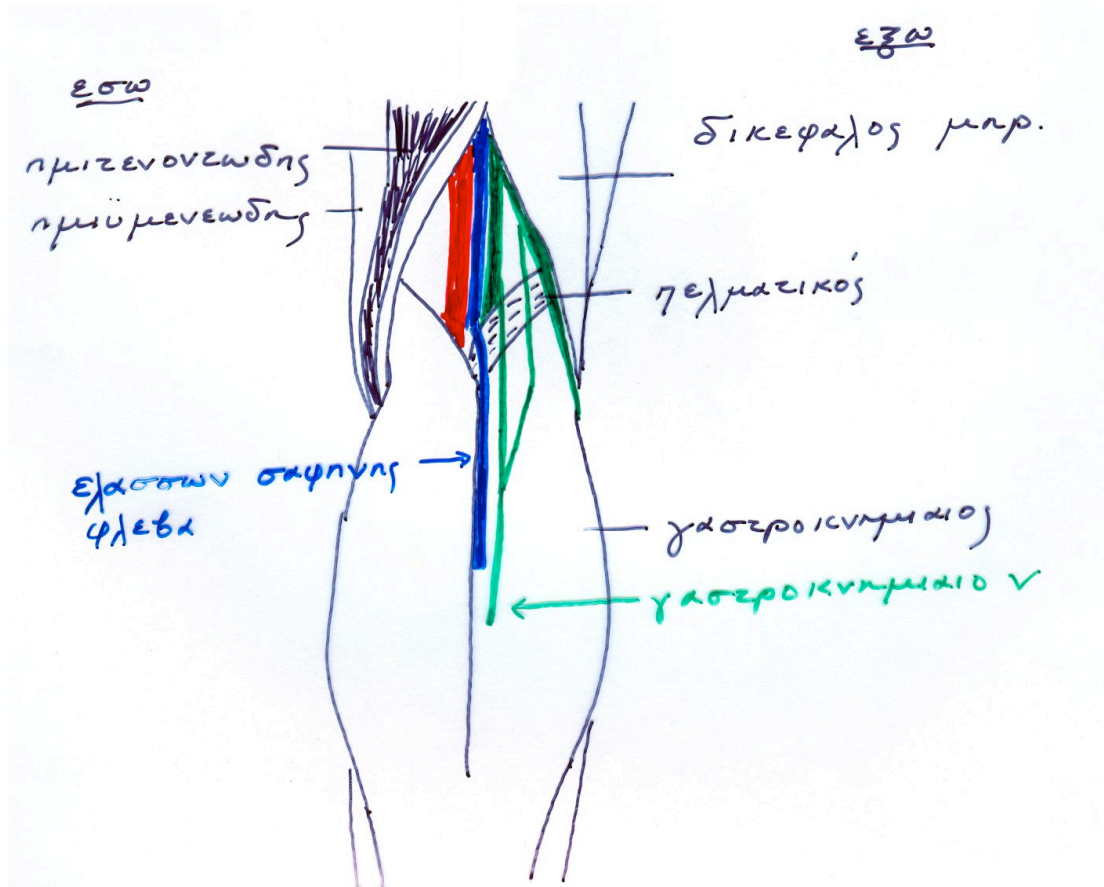 εσω
εξω
ημιτενοντωδης
ημιϋμενεωδης
δικεφαλος μηρ.
πελματικός
ελασσων σαφηνης
φλεβα
γαστροκνημιαιος
γαστροκνημιαιο ν